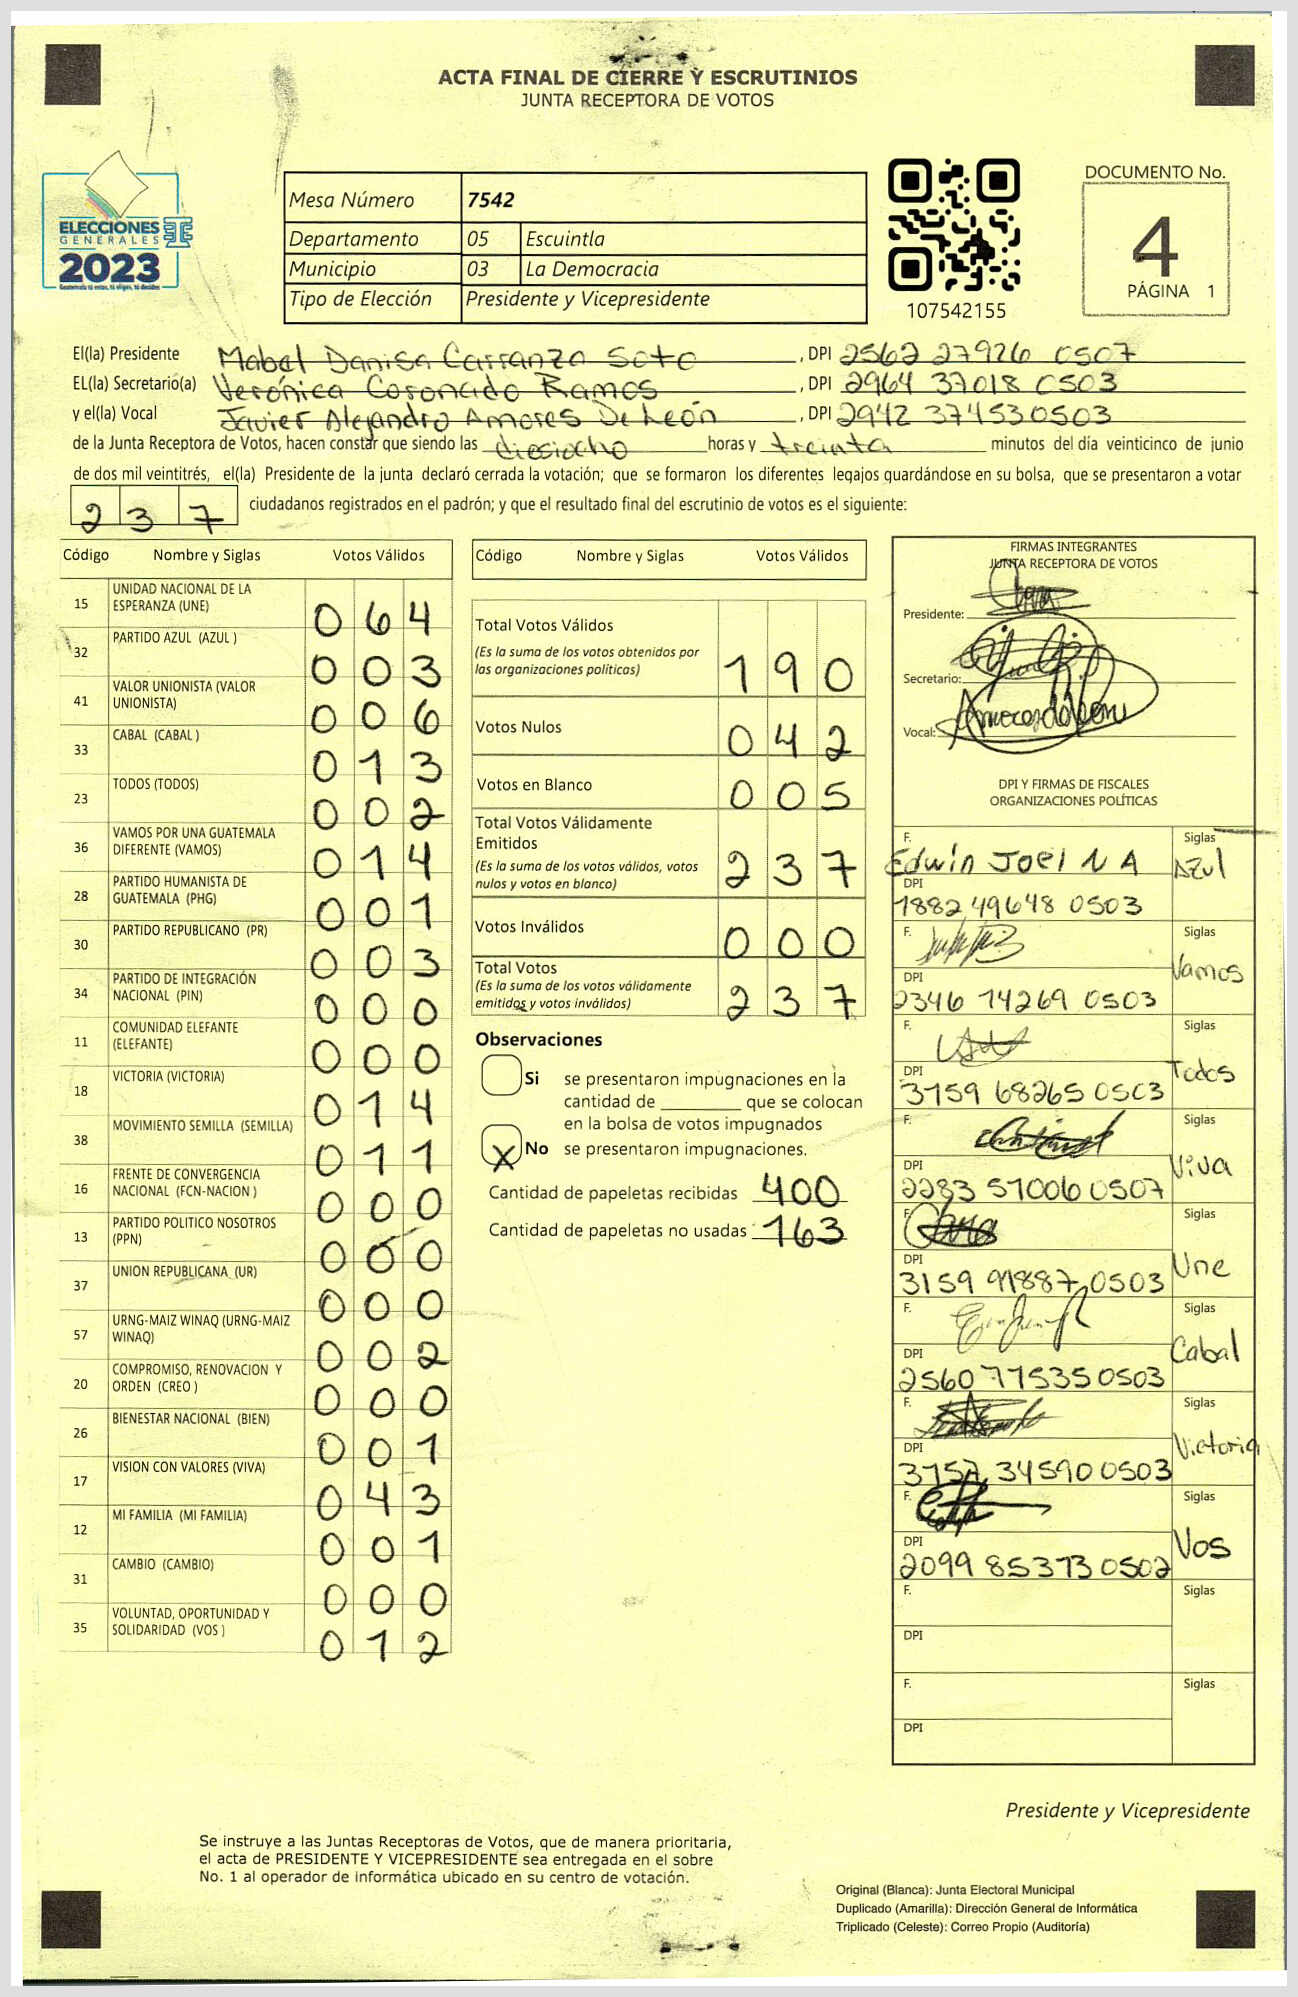 ACTA FINAL DE CIERRE Y ESCRUTINIOS
JUNTA RECEPTORA DE VOTOS
ELECCIONES
GENERALES
2023
Mesa Número 7542
Departamento 05 Escuintla
Municipio 03 La Democracia
Tipo de Elección Presidente y Vicepresidente
107542155
DOCUMENTO No.
4
PÁGINA 1
El(la) Presidente Mabel Danisa Carranza Soto , DPI 2562 27926 0507
EL(la) Secretario(a) Verónica Coronado Ramos , DPI 2964 37018 0503
y el(la) Vocal Javier Alejandro Amores De León , DPI 2942 37453 0503
de la Junta Receptora de Votos, hacen constar que siendo las dieciocho horas y treinta minutos del día veinticinco de junio
de dos mil veintitrés, el(la) Presidente de la junta declaró cerrada la votación; que se formaron los diferentes legajos guardándose en su bolsa, que se presentaron a votar
237 ciudadanos registrados en el padrón; y que el resultado final del escrutinio de votos es el siguiente:
Código Nombre y Siglas Votos Válidos
15 UNIDAD NACIONAL DE LA ESPERANZA (UNE) 064
32 PARTIDO AZUL (AZUL ) 003
41 VALOR UNIONISTA (VALOR UNIONISTA) 006
33 CABAL (CABAL ) 013
23 TODOS (TODOS) 002
36 VAMOS POR UNA GUATEMALA DIFERENTE (VAMOS) 014
28 PARTIDO HUMANISTA DE GUATEMALA (PHG) 001
30 PARTIDO REPUBLICANO (PR) 003
34 PARTIDO DE INTEGRACIÓN NACIONAL (PIN) 000
11 COMUNIDAD ELEFANTE (ELEFANTE) 000
18 VICTORIA (VICTORIA) 014
38 MOVIMIENTO SEMILLA (SEMILLA) 011
16 FRENTE DE CONVERGENCIA NACIONAL (FCN-NACION ) 000
13 PARTIDO POLITICO NOSOTROS (PPN) 000
37 UNION REPUBLICANA (UR) 000
57 URNG-MAIZ WINAQ (URNG-MAIZ WINAQ) 002
20 COMPROMISO, RENOVACION Y ORDEN (CREO ) 000
26 BIENESTAR NACIONAL (BIEN) 001
17 VISION CON VALORES (VIVA) 043
12 MI FAMILIA (MI FAMILIA) 001
31 CAMBIO (CAMBIO) 000
35 VOLUNTAD, OPORTUNIDAD Y SOLIDARIDAD (VOS ) 012
Código Nombre y Siglas Votos Válidos
Total Votos Válidos 190
(Es la suma de los votos obtenidos por
las organizaciones políticas)
Votos Nulos 042
Votos en Blanco 005
Total Votos Válidamente
Emitidos 237
(Es la suma de los votos válidos, votos
nulos y votos en blanco)
Votos Inválidos 000
Total Votos 237
(Es la suma de los votos válidamente
emitidos y votos inválidos)
Observaciones
Si se presentaron impugnaciones en la
cantidad de ________ que se colocan
en la bolsa de votos impugnados
X No se presentaron impugnaciones.
Cantidad de papeletas recibidas 400
Cantidad de papeletas no usadas 163
FIRMAS INTEGRANTES
JUNTA RECEPTORA DE VOTOS
Presidente:
Secretario:
Vocal:
DPI Y FIRMAS DE FISCALES
ORGANIZACIONES POLÍTICAS
F. Edwin Joel N A Siglas Azul
DPI 1882 49648 0503
F. Siglas Vamos
DPI 2346 14269 0503
F. Siglas Todos
DPI 3159 68265 0503
F. Siglas Viva
DPI 2283 51006 0507
F. Siglas Une
DPI 3159 91887 0503
F. Siglas Cabal
DPI 2560 77535 0503
F. Siglas Victoria
DPI 3157 34590 0503
F. Siglas Vos
DPI 2099 85373 0502
F. Siglas
DPI
F. Siglas
DPI
Presidente y Vicepresidente
Se instruye a las Juntas Receptoras de Votos, que de manera prioritaria,
el acta de PRESIDENTE Y VICEPRESIDENTE sea entregada en el sobre
No. 1 al operador de informática ubicado en su centro de votación.
Original (Blanca): Junta Electoral Municipal
Duplicado (Amarilla): Dirección General de Informática
Triplicado (Celeste): Correo Propio (Auditoría)